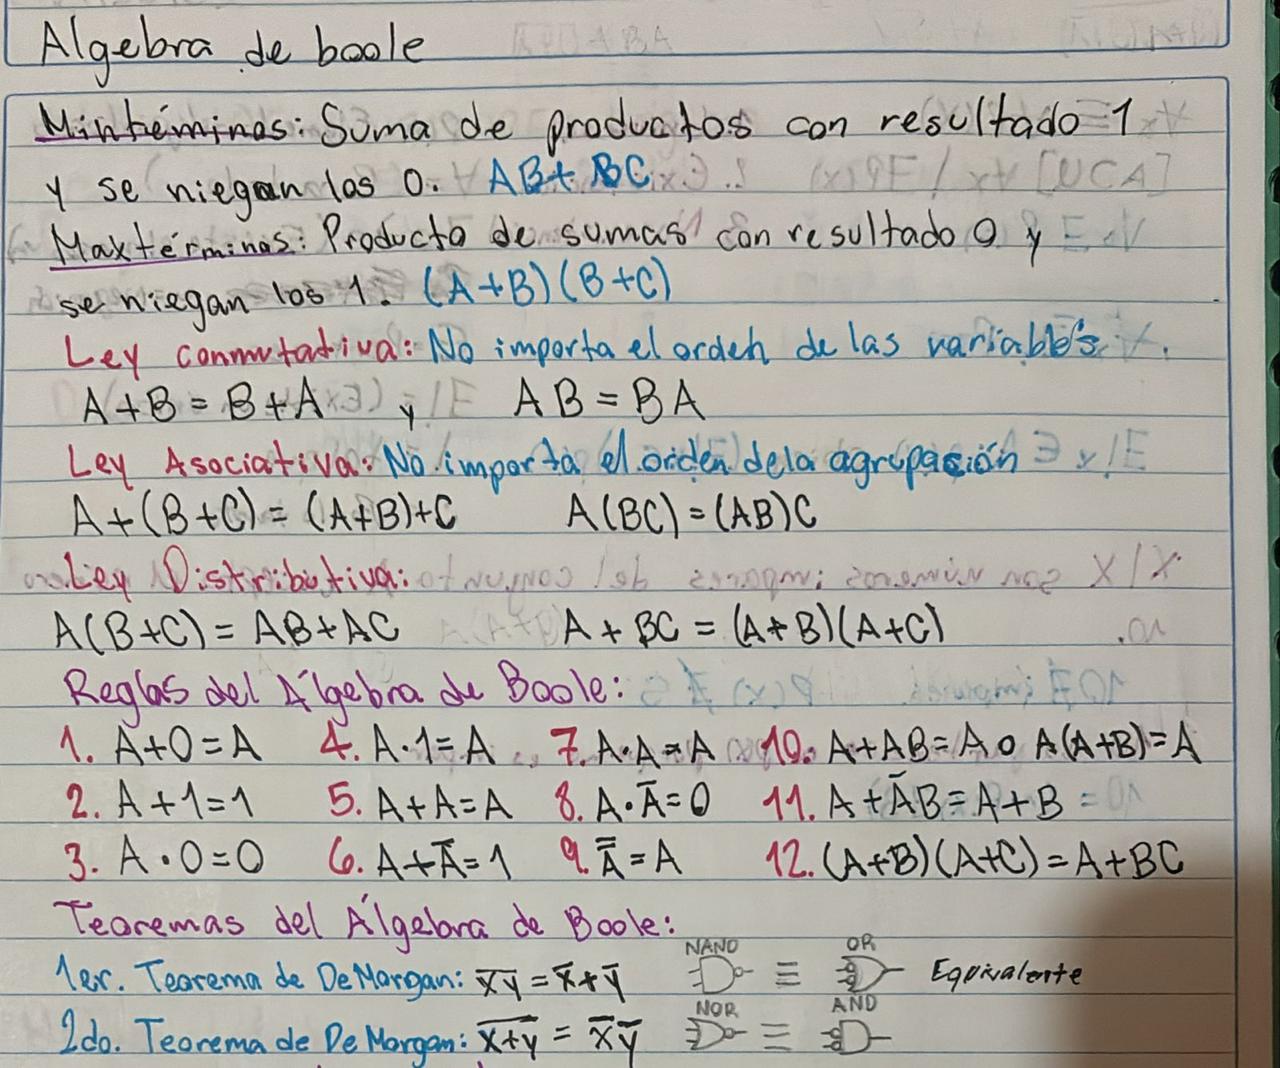 Algebra de boole
Mintéminos: Suma de productos con resultado 1
y se niegan los 0. AB+ BC
Maxtérminos: Producto de sumas con resultado 0 y
se niegan los 1. (A+B)(B+C)
Ley conmutativa: No importa el orden de las variables.
A+B = B+A y AB = BA
Ley Asociativa: No importa el orden de la agrupación
A+(B+C) = (A+B)+C A(BC) = (AB)C
Ley Distributiva:
A(B+C) = AB+AC A + BC = (A+B)(A+C)
Reglas del Álgebra de Boole:
1. A+0=A 4. A·1=A 7. A·A=A 10. A+AB=A o A(A+B)=A
2. A+1=1 5. A+A=A 8. A·A̅=0 11. A+A̅B=A+B
3. A·0=0 6. A+A̅=1 9. A̿=A 12. (A+B)(A+C)=A+BC
Teoremas del Álgebra de Boole:
NAND OR
1er. Teorema de DeMorgan: x̅y̅ = x̅+y̅ ≡ Equivalente
NOR AND
2do. Teorema de DeMorgan: x̅+̅y̅ = x̅ y̅ ≡